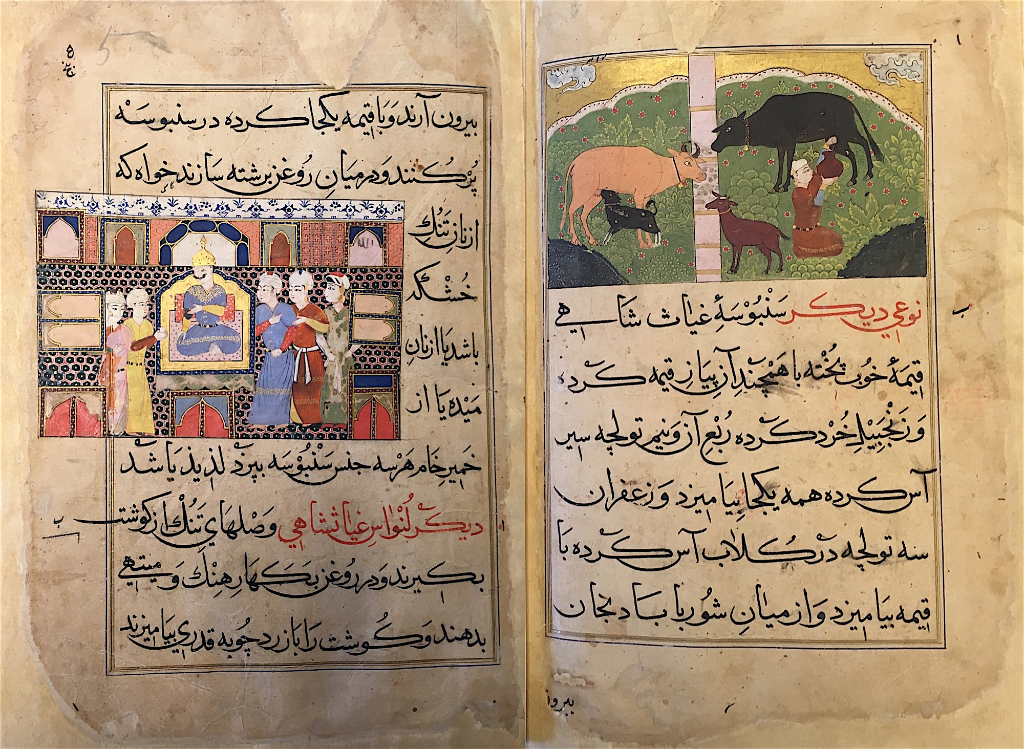 نوعی دیکر سنبوسهٔ غیاث شاهی
قیمهٔ خوب پخته با همچند آن پیاز قیمه کرده
و زنجبیل خرد کرده ربع آن و نیم تولچه سیر
آس کرده همه یکجا بیامیزد و زعفران
سه تولچه در کلاب آس کرده با
قیمه بیامیزد و از میان شوربا بادنجان
بیرون
بیرون آرند و با قیمه یکجا کرده در سنبوسه
پر کنند و در میان روغن برشته سازند خواه که
از نان تنك
خشکه
باشد یا از نان
میده یا از
خمیر خام هر سه جنس سنبوسه بپزد لذیذ باشد
دیکر غیاثشاهی وصلهای تنك از کوشت
بکیرند و در روغن بکهار هینك و میتهی
بدهند و کوشت را با زردچوبه قدری بیامیزند